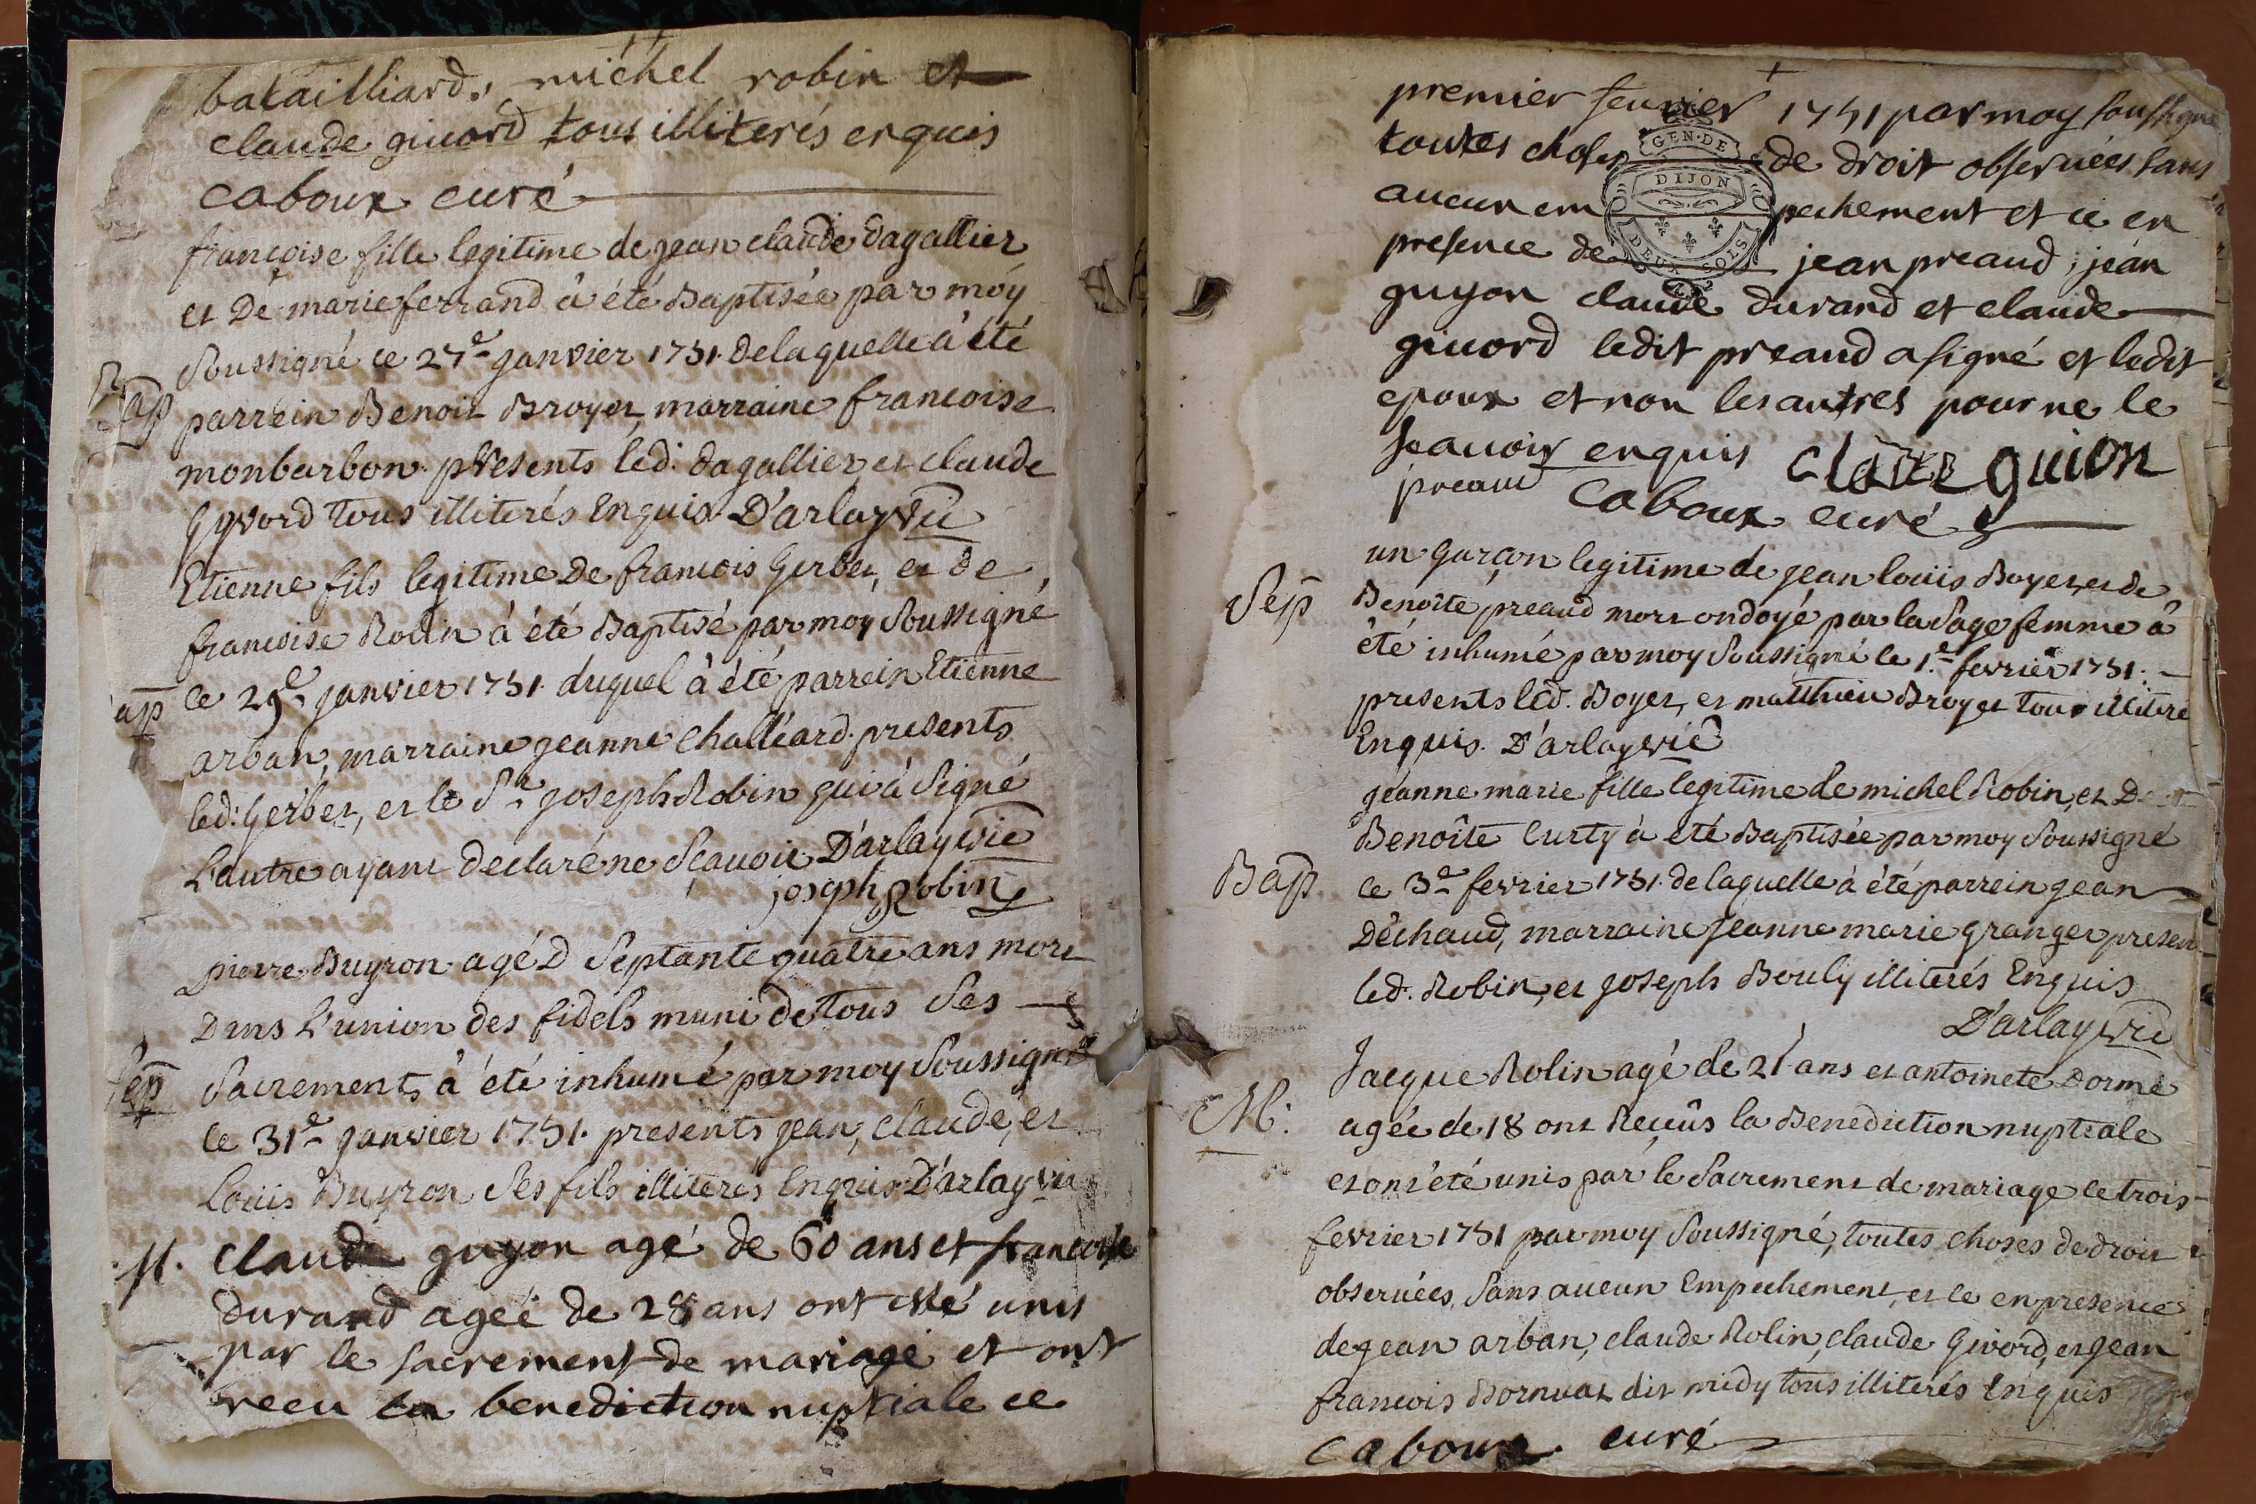 batailliard, michel robin et
claude giuord tous illiterés enquis
caboux curé
françoise fille legitime de jean claude dagallier
et De marie ferrand à été Baptisée par moy
Soussigné ce 27e janvier 1751. de laquelle à été
Bap
parrein Benoit Broyer, marraine francoise
monbarbon. presents led. dagallier et claude
Gyvord tous illiterés Enquis D'arlay vic
Etienne fils legitime De francois Gerbet, et de
francoise Robin à été Baptisé par moy Soussigné
ap
le 29e janvier 1751. duquel à été parrein Etienne
arban, marraine jeanne challéard. presents
led: Gerbet, et le Sr joseph Robin qui à Signé
L'autre ayant declaré ne Sçavoir D'arlay vic
joseph Robin
pierre Buyron agé D Septante quatre ans mort
Dans L'union des fidels muni de Tous Ses
Sep
Sacrements à été inhumé par moy Soussigné
le 31e janvier 1751. presents jean, claude, et
Loüis Buyron Ses fils illiterés Enquis D'arlay vic
M. claude guyon agé de 60 ans et francoise
durand agée de 28 ans ont eté unis
par le sacrement de mariage et ont
receu la benediction nuptiale ce
premier feurier 1751 par moy soussigné
toutes choses de droit obseruées sans
aucun empechement et ce en
presence de jean preaud, jean
GEN. DE
DIJON
DEUX SOLS
guyon claude durand et claude
giuord ledit preaud a signé et ledit
epoux et non les autres pour ne le
scauoir enquis claude guion
preaud caboux curé
un garçon legitime de jean loüis Boyer, et de
Sep
Benoîte preaud mort ondoyé par la Sage femme à
été inhumé par moy Soussigné le 1.e fevrier 1751.
presents led. Boyer, et matthieu Broyer tous illiteré
Enquis. D'arlay vic
jeanne marie fille legitime de michel Robin, et De
Benoîte Curty à été Baptisée par moy Soussigné
Bap
le 3e fevrier 1751. de laquelle à été parrein jean
Dêchaud, marraine Jeanne marie granger presen
led. Robin, et joseph Bouly illiterés Enquis
D'arlay vic
Jacque Rolin agé de 21 ans et antoinete Dorme
M:
agée de 18 ont Reçûs la Benediction nuptiale
et ont été unis par le Sacrement de mariage le trois
fevrier 1751 par moy Soussigné, toutes choses de droit
obseruées, Sans aucun Empechement, et ce en presence
de jean arban, claude Rolin, claude Givord, et jean
francois Bornuat dit midy tous illiterés Enquis
caboux curé